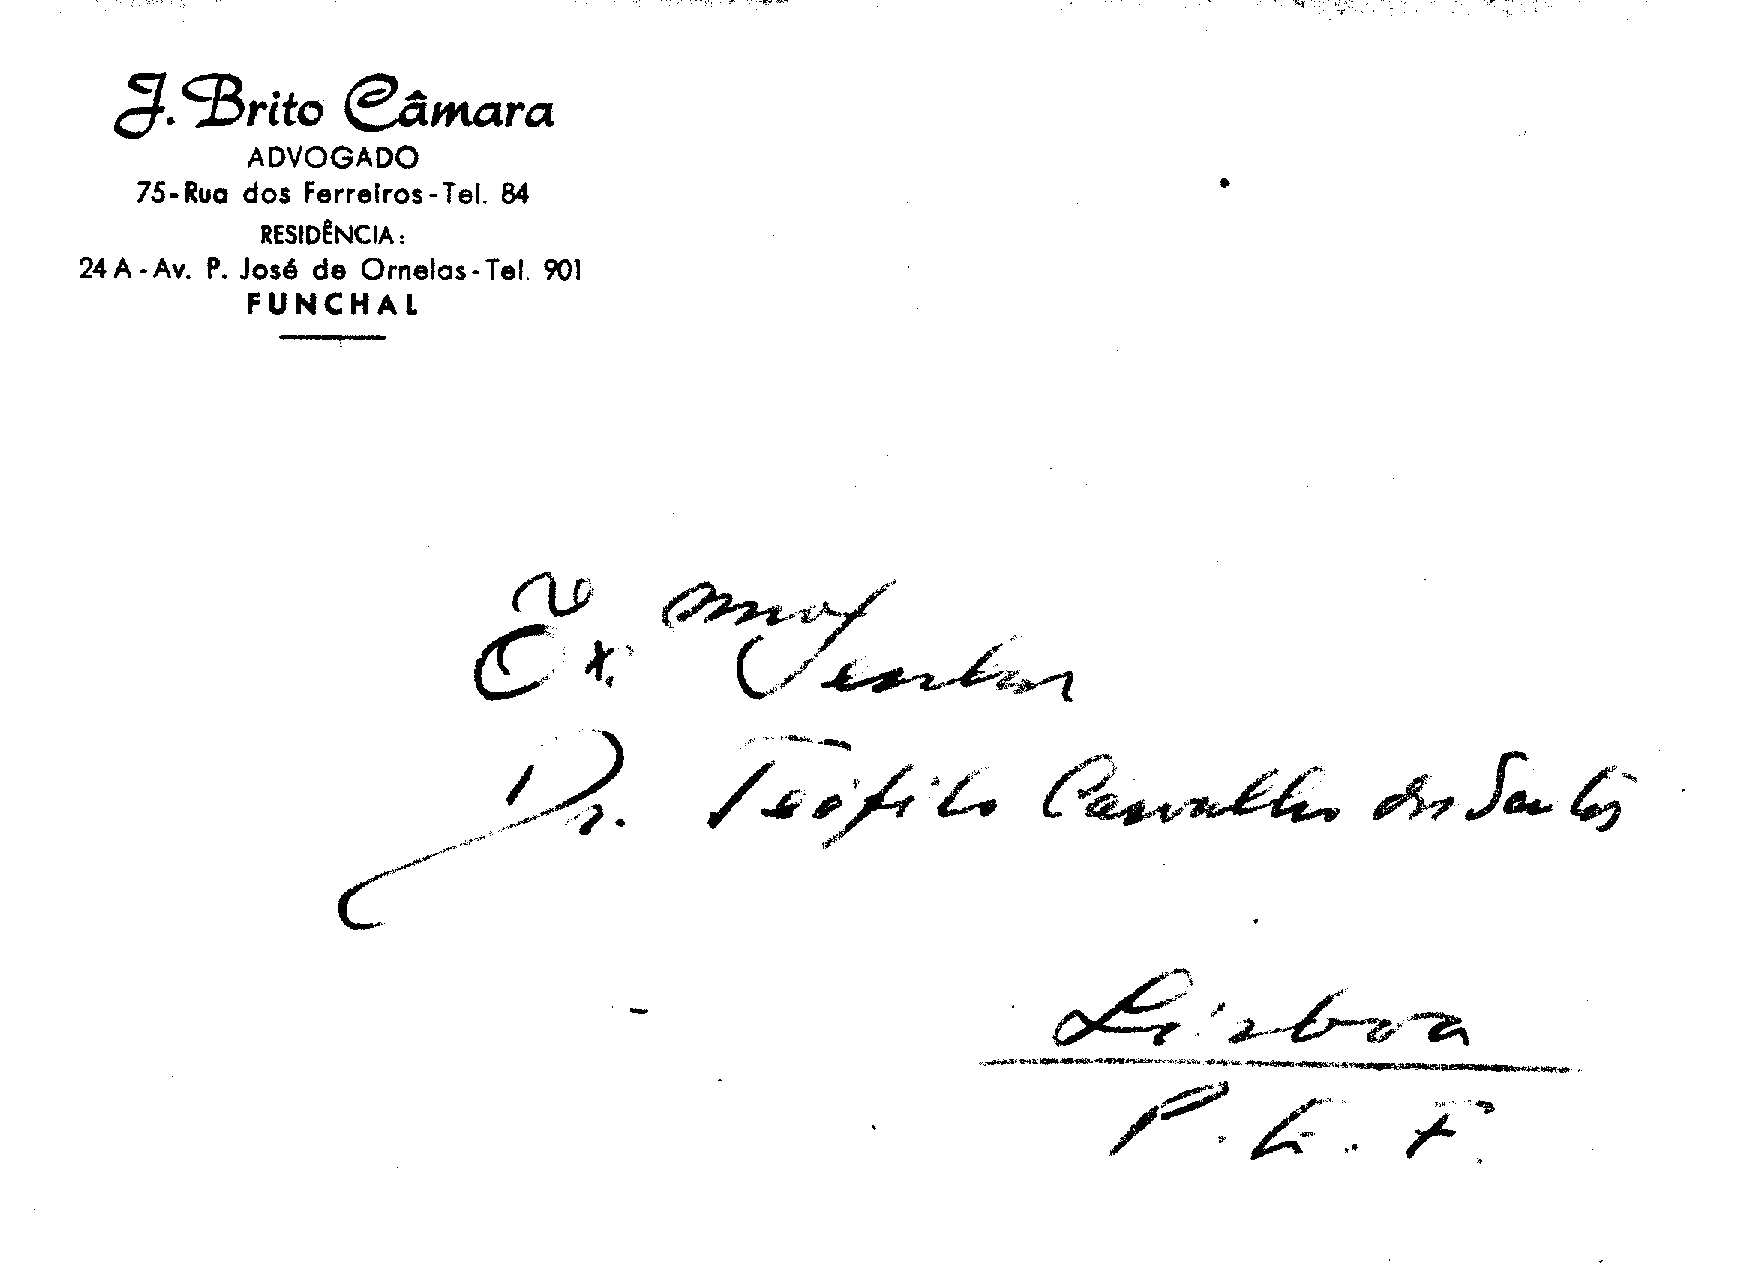 J. Brito Câmara
ADVOGADO
75-Rua dos Ferreiros-Tel. 84
RESIDÊNCIA:
24 A - Av. P. José de Ornelas-Tel. 901
FUNCHAL
Ex.mo Senhor
Dr. Teófilo Carvalho dos Santos
Lisboa
P. E. F.